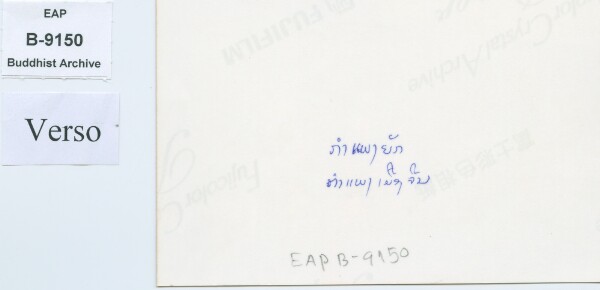 EAP
B-9150
Buddhist Archive
Verso
FUJIFILM
Crystal Archive
ກຳແພງຍັກ
ກຳແພງເມືອງຈີນ
Fujicolor
EAP B-9150